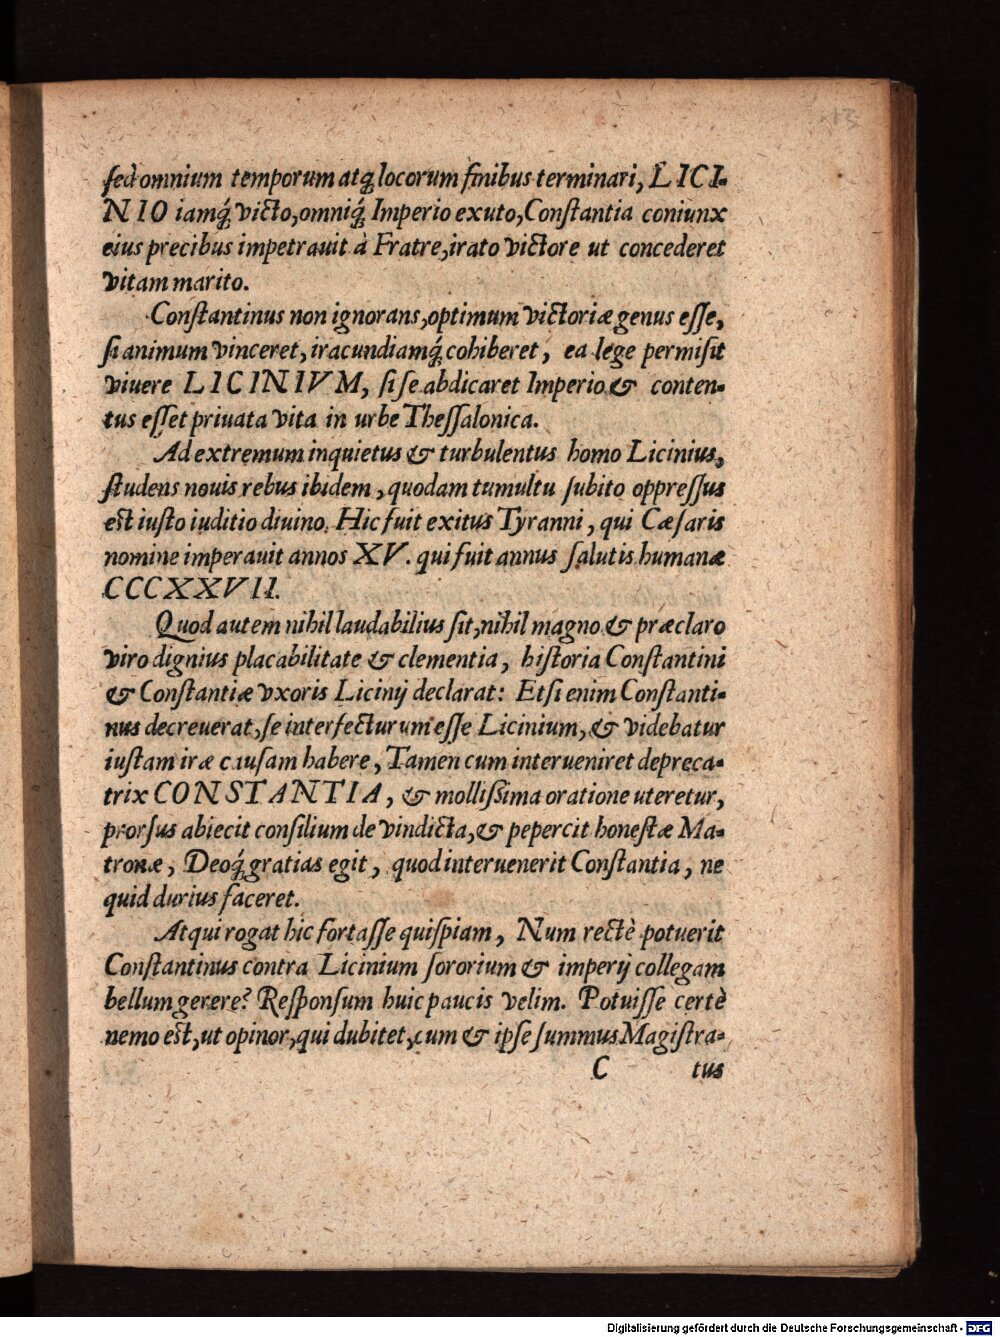 ſed omnium temporum atq́; locorum finibus terminari, LICI-
NIO iamq́; victo, omniq́; Imperio exuto, Conſtantia coniunx
eius precibus impetrauit à Fratre, irato victore ut concederet
vitam marito.
Conſtantinus non ignorans, optimum victoriæ genus eſſe,
ſi animum vinceret, iracundiamq́; cohiberet, ea lege permiſit
viuere LICINIVM, ſi ſe abdicaret Imperio & conten-
tus eſſet priuata vita in urbe Theſſalonica.
Ad extremum inquietus & turbulentus homo Licinius,
ſtudens nouis rebus ibidem, quodam tumultu ſubito oppreſſus
est iuſto iuditio diuino. Hic fuit exitus Tyranni, qui Cæſaris
nomine imperauit annos XV. qui fuit annus ſalutis humanæ
CCCXXVII.
Quod autem nihil laudabilius ſit, nihil magno & præclaro
viro dignius placabilitate & clementia, hiſtoria Conſtantini
& Conſtantiæ vxoris Licinij declarat: Etſi enim Conſtanti-
nus decreuerat, ſe interfecturum eſſe Licinium, & videbatur
iuſtam iræ cauſam habere, Tamen cum interueniret depreca-
trix CONSTANTIA, & molliſsima oratione uteretur,
prorſus abiecit conſilium de vindicta, & pepercit honeſtæ Ma-
tronæ, Deoq́; gratias egit, quod interuenerit Conſtantia, ne
quid durius faceret.
Atqui rogat hic fortaſſe quiſpiam, Num rectè potuerit
Conſtantinus contra Licinium ſororium & imperij collegam
bellum gerere? Reſponſum huic paucis velim. Potuiſſe certè
nemo est, ut opinor, qui dubitet, cum & ipſe ſummus Magiſtra-
C tus
Digitalisierung gefördert durch die Deutsche Forschungsgemeinschaft - DFG